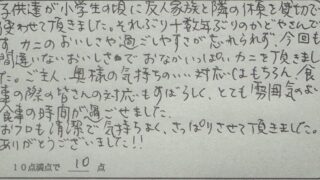 子供達が小学生の頃に友人家族と隣の体験を使わせて頂きました。それぶり十数年ぶりのかどやさんです。カニのおいしさや過ごしやすさが忘れられず、今回も間違いないおいしさでおなかいっぱいカニを頂きました。ごま人、奥様の気持ちのいい対応はもちろん、食事の際の皆さんの対応もすばらしく、とても雰囲気のよい食事の時間が過ごせました。
おフロも清潔で気持ちよく、さっぱりさせて頂きました。
ありがとうございました!!
10点満点で 10 点